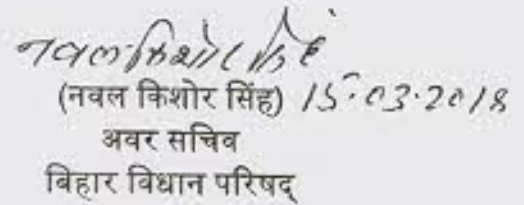 नवल किशोर सिंह
(नवल किशोर सिंह) 15.03.2018
अवर सचिव
बिहार विधान परिषद्